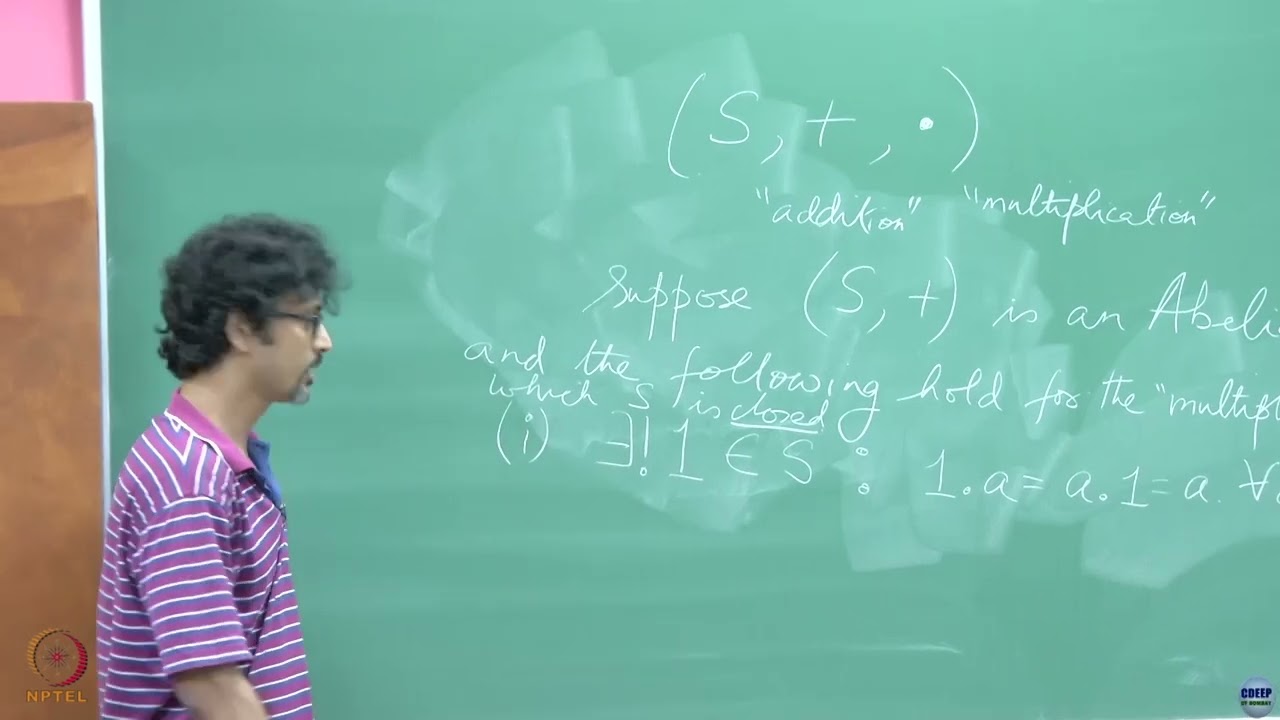 (S, +, •)
"addition" "multiplication"
Suppose (S, +) is an Abeli
and the following hold for the "multipl
which S is closed
(i) ∃! 1 ∈ S : 1.a = a.1 = a. ∀
NPTEL
CDEEP
IIT BOMBAY